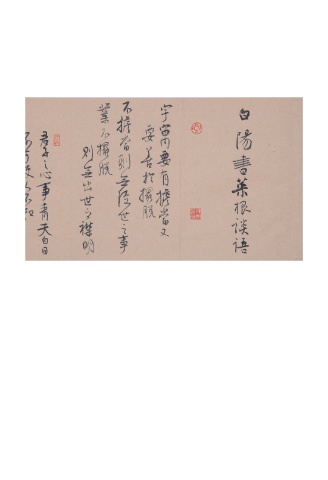 白陽書菜根談語
宇宙內要有擔當又
要善於擺脫
不擔當則無經世之事
業不擺脫
則無出世之襟期
君子之心事青天白日